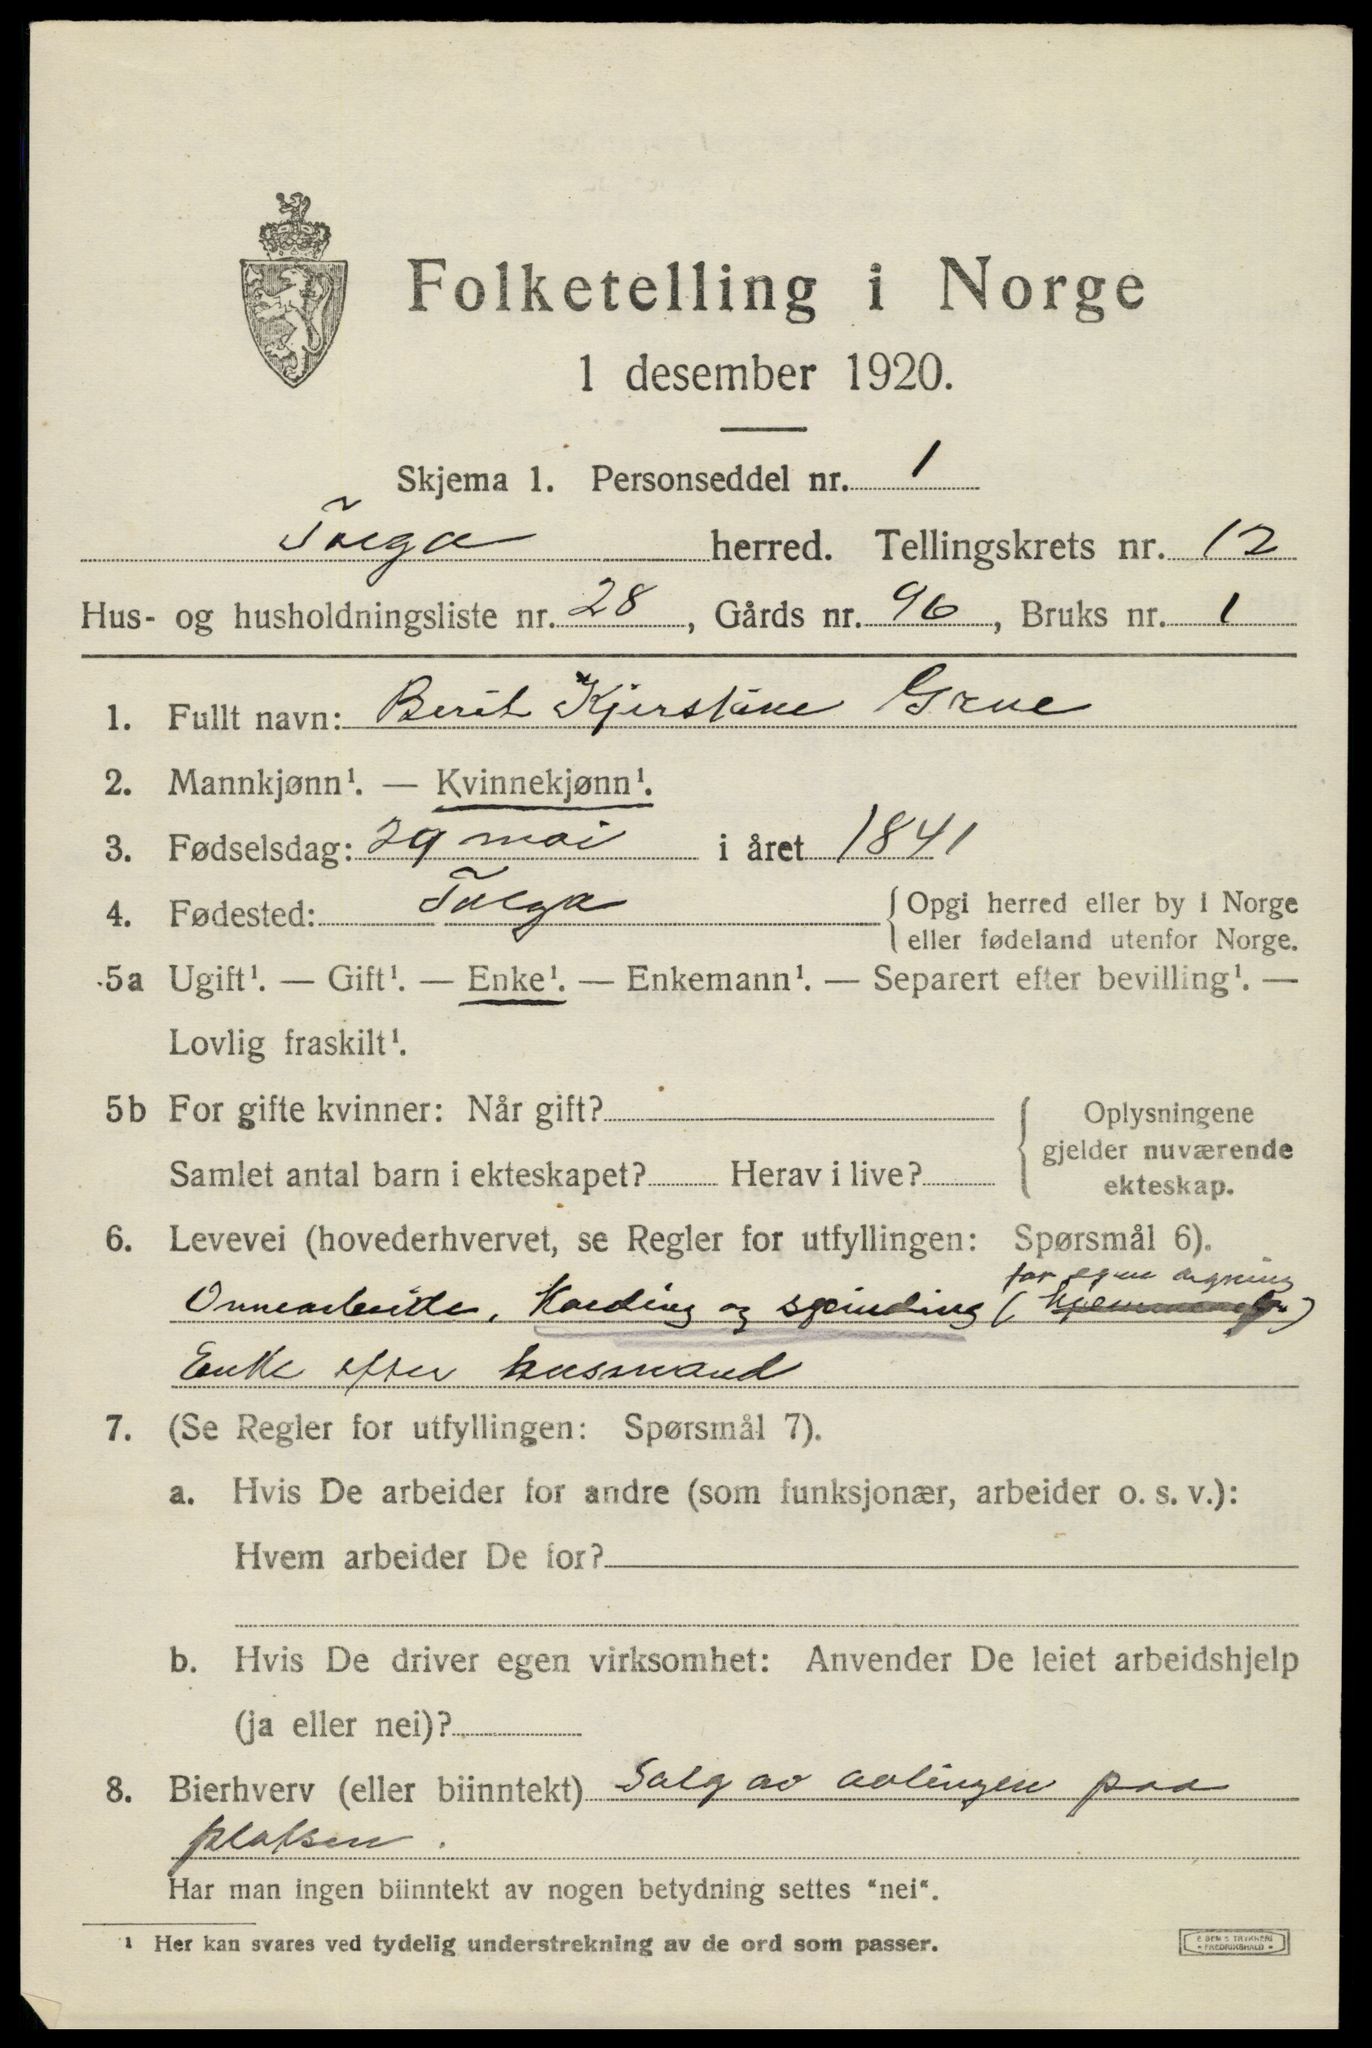 Folketelling i Norge
1 desember 1920.
Skjema 1. Personseddel nr. 1
Tolga herred. Tellingskrets nr. 12
Hus- og husholdningsliste nr. 28, Gårds nr. 96, Bruks nr. 1
1. Fullt navn: Berit Kjerstine Grue
2. Mannkjønn¹. — Kvinnekjønn¹.
3. Fødselsdag: 29 mai i året 1841
4. Fødested: Tolga {Opgi herred eller by i Norge
eller fødeland utenfor Norge.
5a Ugift¹. — Gift¹. — Enke¹. — Enkemann¹. — Separert efter bevilling¹. —
Lovlig fraskilt¹.
5b For gifte kvinner: Når gift?
Samlet antal barn i ekteskapet? Herav i live?
Oplysningene
gjelder nuværende
ekteskap.
6. Levevei (hovederhvervet, se Regler for utfyllingen: Spørsmål 6).
for egen regning
Onnearbeide, Karding og spinding ( )
Enke efter husmand
7. (Se Regler for utfyllingen: Spørsmål 7).
a. Hvis De arbeider for andre (som funksjonær, arbeider o. s. v.):
Hvem arbeider De for?
b. Hvis De driver egen virksomhet: Anvender De leiet arbeidshjelp
(ja eller nei)?
8. Bierhverv (eller biinntekt) Salg av avlingen paa
platsen.
Har man ingen biinntekt av nogen betydning settes "nei".
¹ Her kan svares ved tydelig understrekning av de ord som passer.